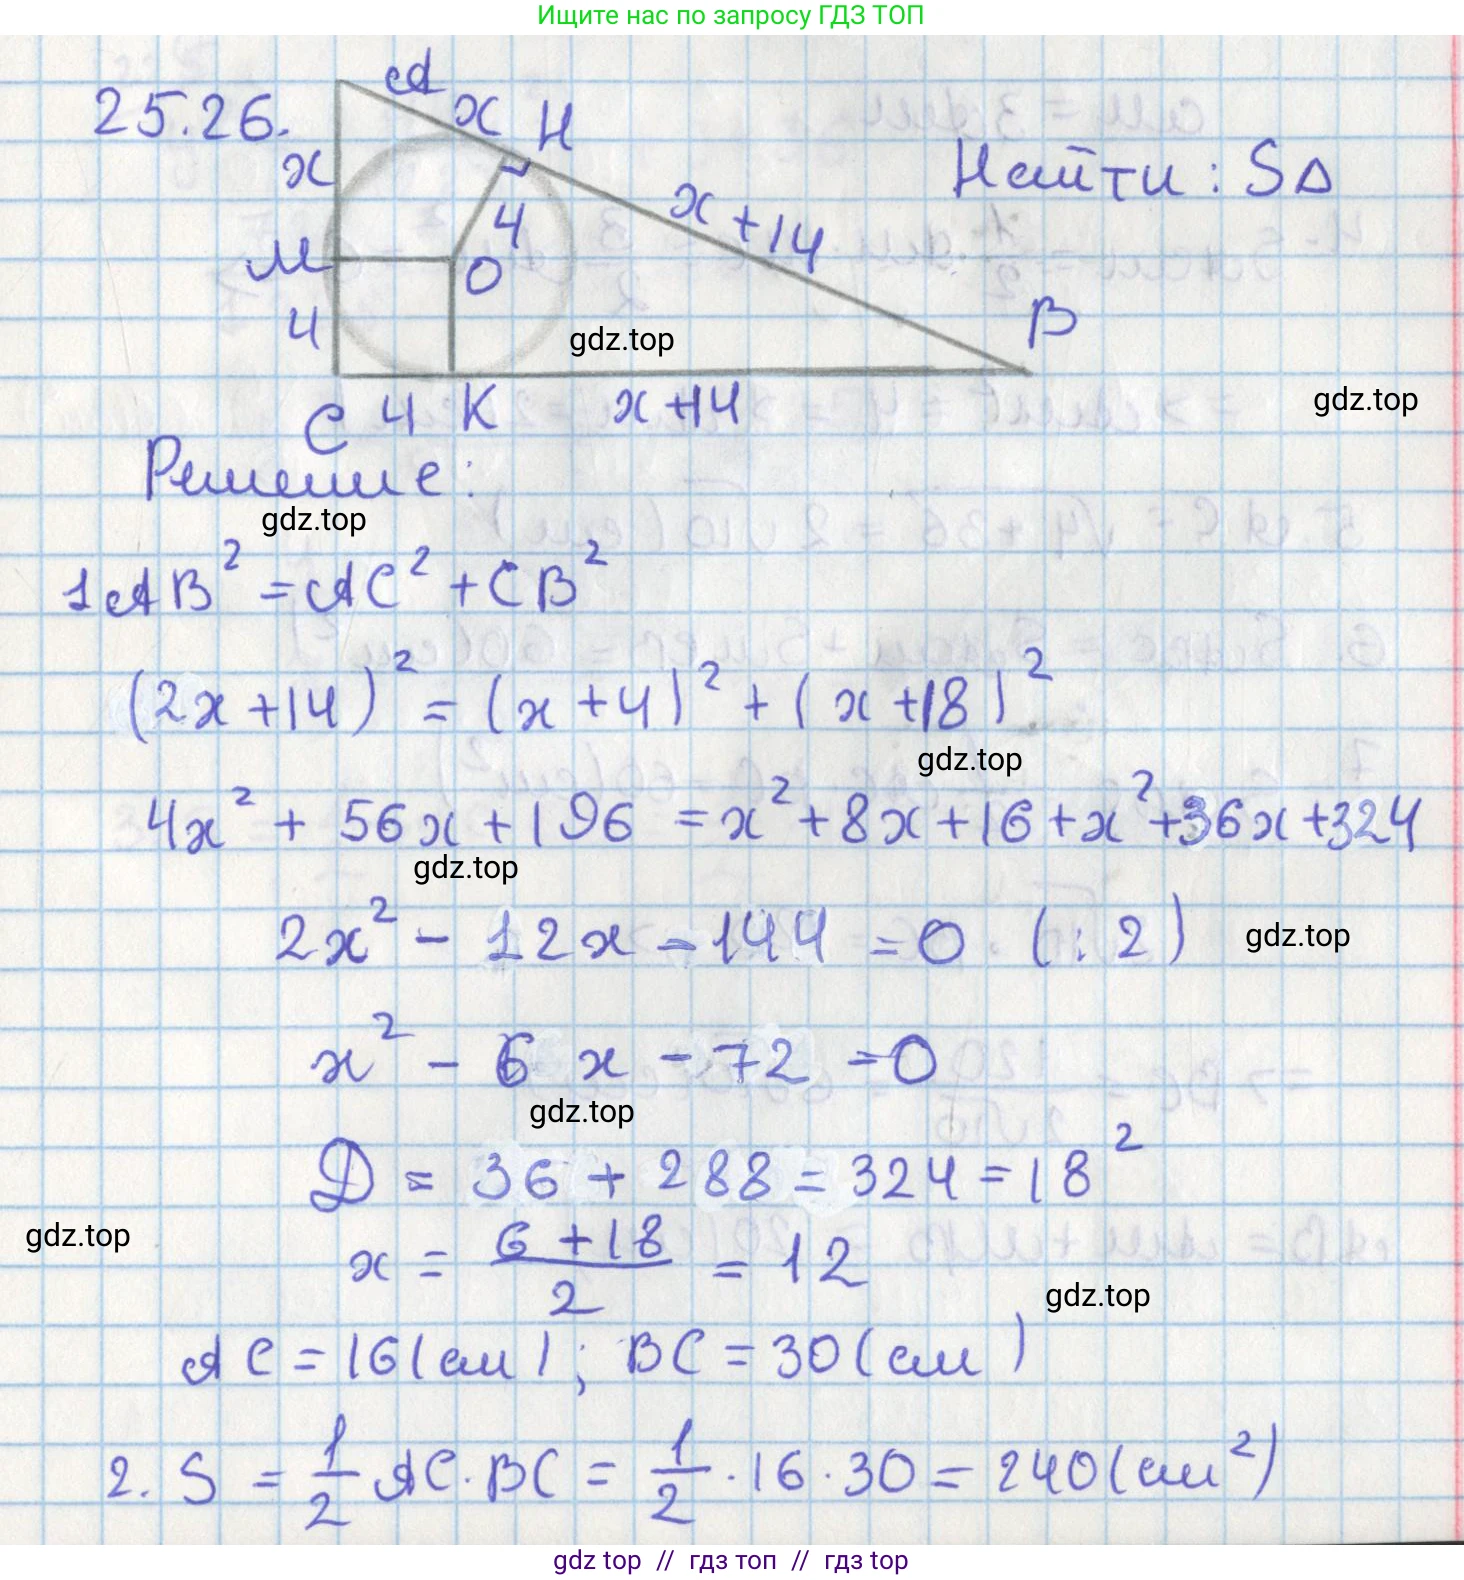 Ищите нас по запросу ГДЗ ТОП
25.26.
A
x
H
x
Найти: S△
x+14
M
4
O
4
B
gdz.top
gdz.top
C 4 K x+14
Решение:
gdz.top
1 AB² = AC² + CB²
(2x+14)² = (x+4)² + (x+18)²
gdz.top
4x² + 56x + 196 = x² + 8x + 16 + x² + 36x + 324
gdz.top
2x² - 12x - 144 = 0 (:2)
gdz.top
x² - 6x - 72 = 0
gdz.top
D = 36 + 288 = 324 = 18²
gdz.top
x = (6+18)/2 = 12
gdz.top
AC = 16(см); BC = 30(см)
2. S = 1/2 AC·BC = 1/2 · 16 · 30 = 240(см²)
gdz top // гдз топ // гдз top